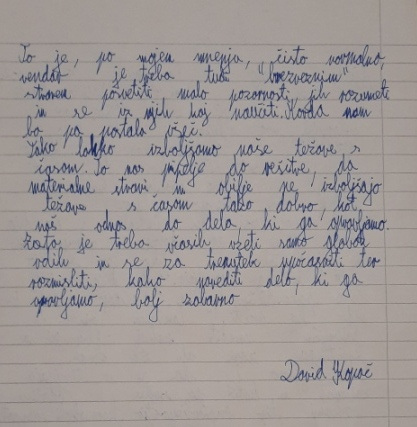 To je, po mojem mnenju, čisto normalno,
vendar je treba tudi "brezveznim"
stvarem posvetiti malo pozornosti, jih razumeti
in se iz njih kaj naučiti. Morda nam
bo pa postalo všeč.
Tako lahko izboljšamo naše težave s
časom. To nas pripelje do rešitve, da
materialne stvari in obilje ne izboljšajo
težave s časom tako dobro, kot
naš odnos do dela, ki ga opravljamo.
Zato je treba včasih vzeti samo globok
vdih in se za trenutek upočasniti ter
razmisliti, kako narediti delo, ki ga
opravljamo, bolj zabavno
David Kopač